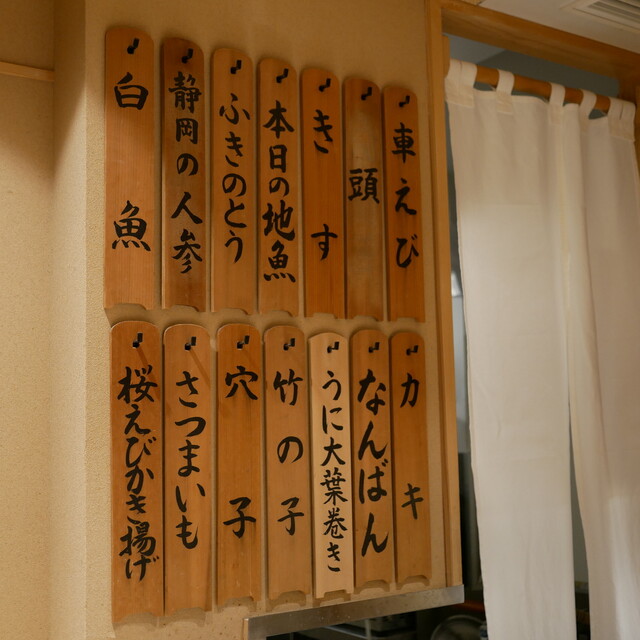 車えび
頭
きす
本日の地魚
ふきのとう
静岡の人参
白魚
カキ
なんばん
うに大葉巻き
竹の子
穴子
さつまいも
桜えびかき揚げ